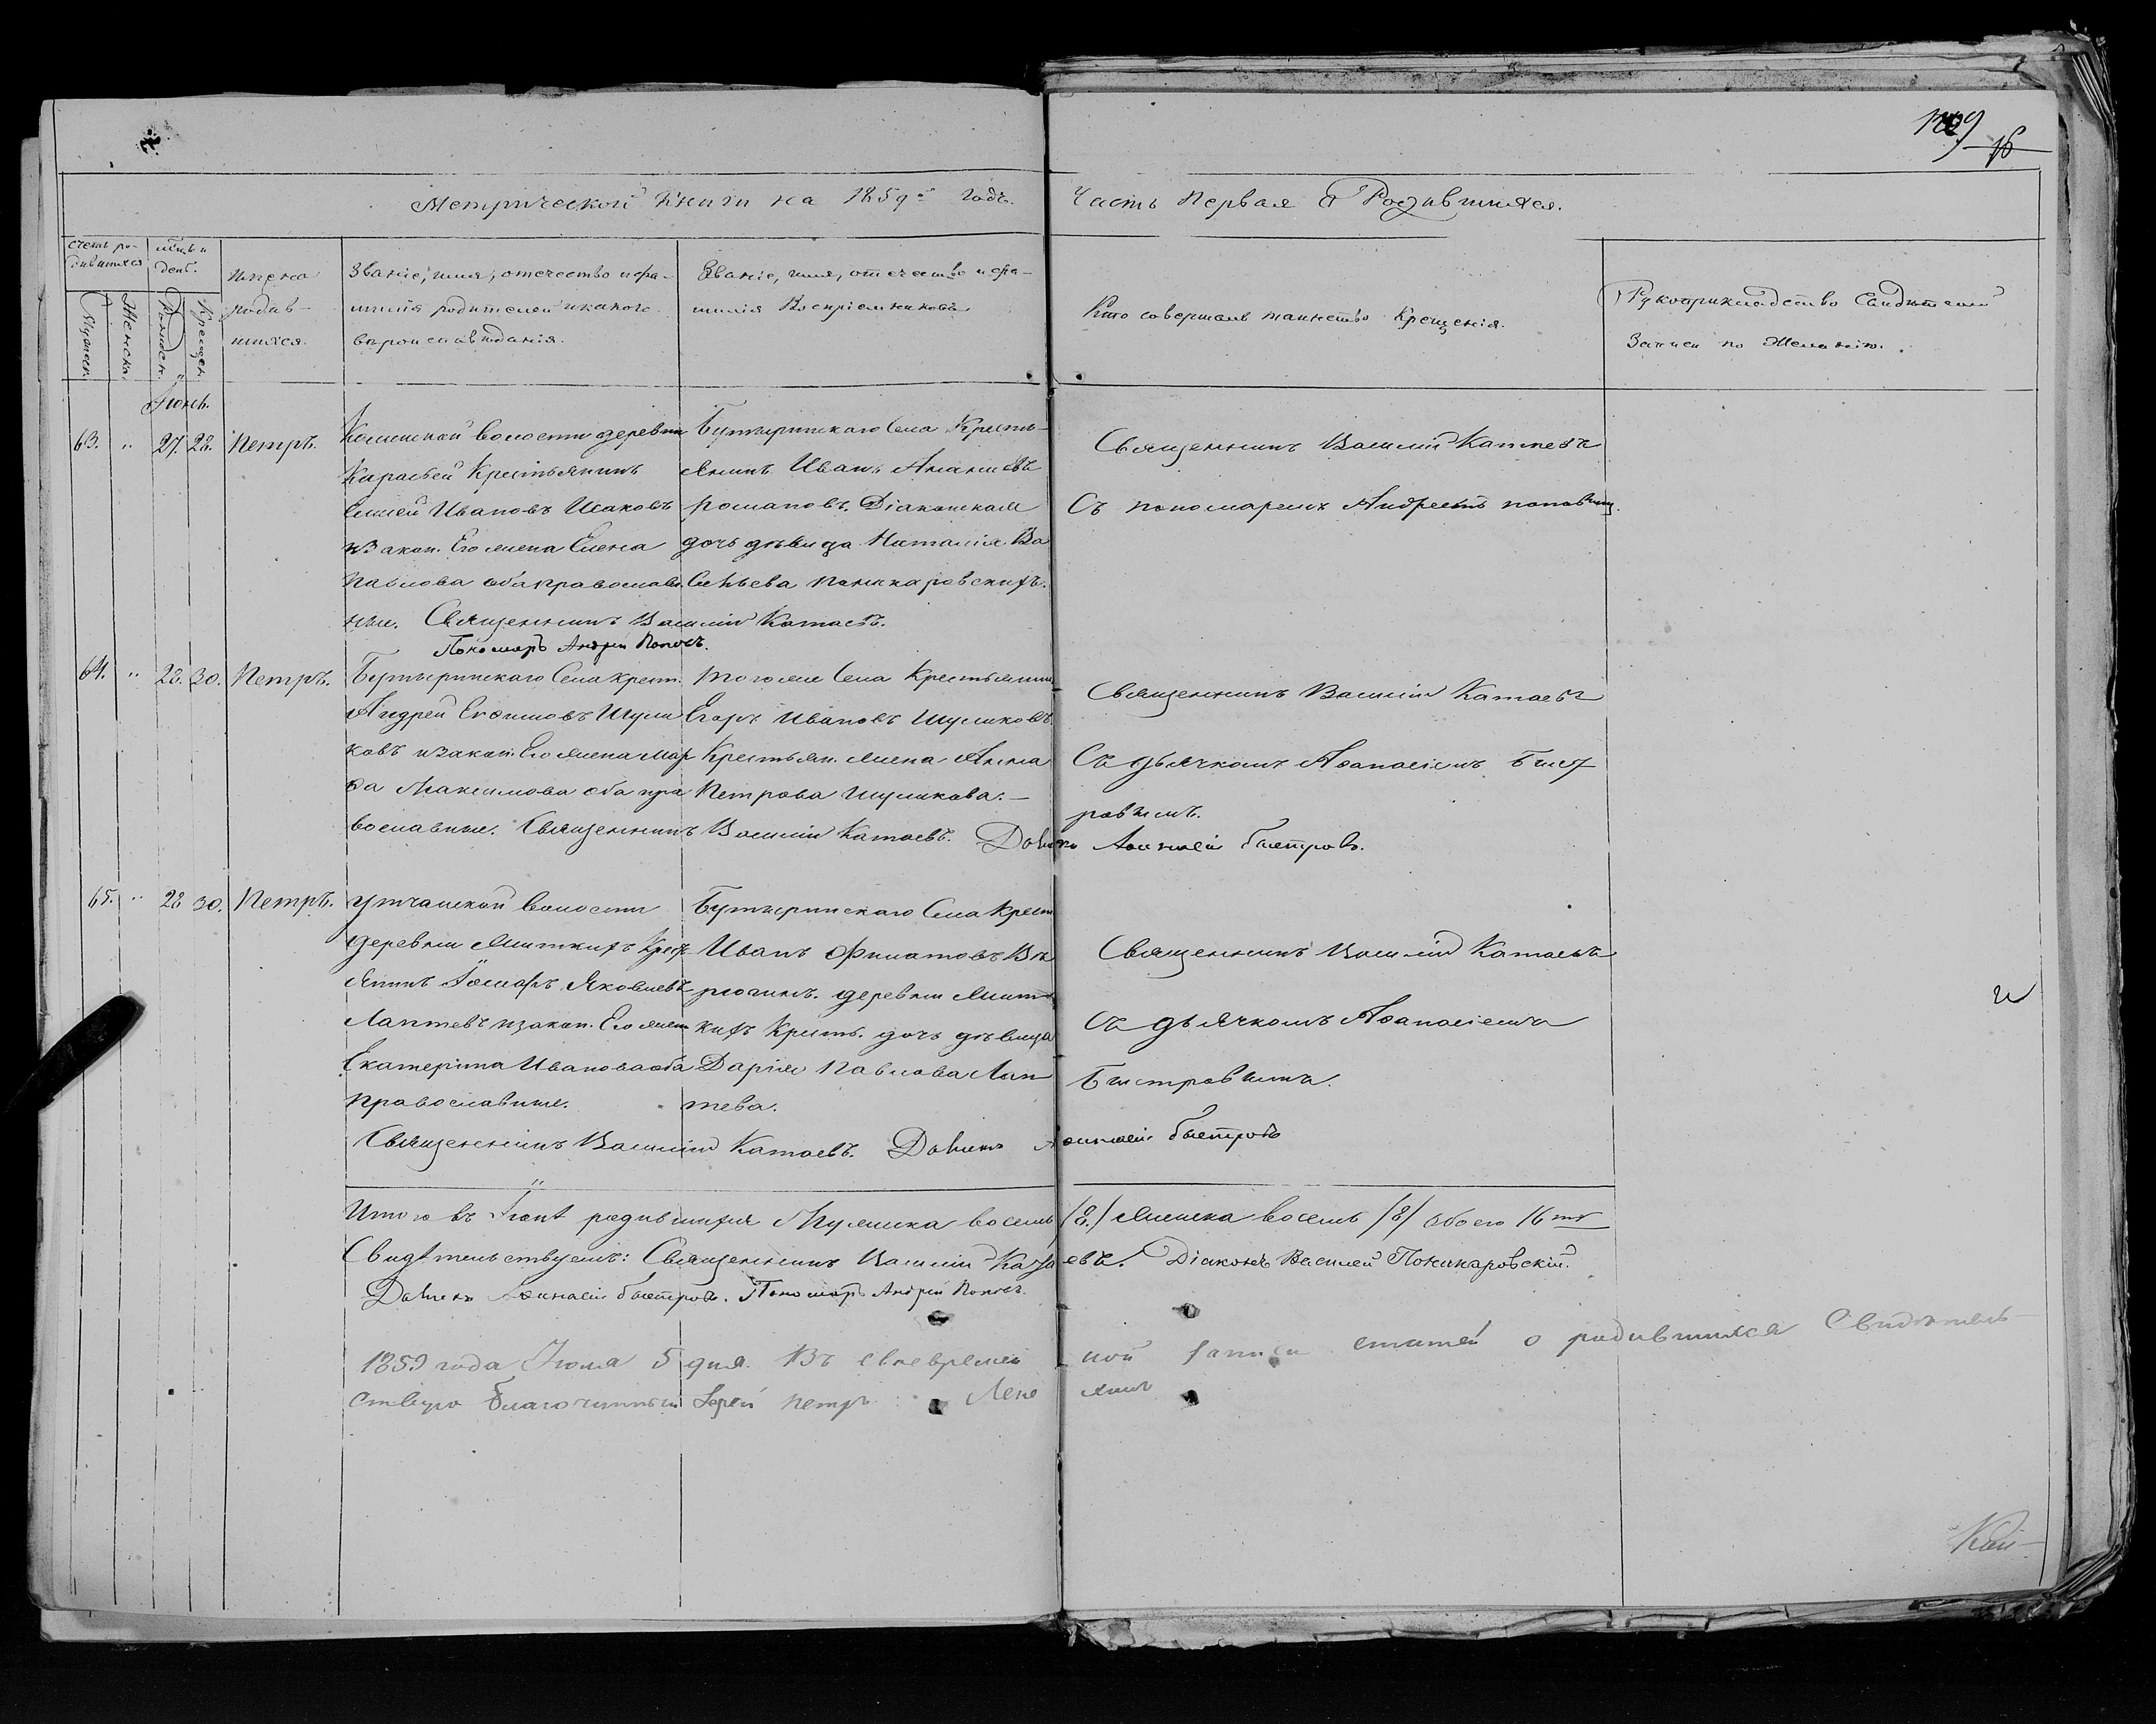 16
Метрической Книги на 1859й годъ. Часть Первая О Родившихся.
счетъ ро-
дившихся
Мужеск.
Женска.
мцъ и
денб.
Рожден.
Крещен.
Имена
родив-
шихся.
Званіе, имя, отчество и фа-
милія родителей и какого
вѣроисповѣданія.
Званіе, имя, отчество и фа-
милія Воспріемниковъ
Кто совершалъ таинство Крещенія.
Рукоприкладство Свидѣтелей
Записи по Желанію.
Іюнь.
63. " 27. 28. Петръ.
волости деревни
Карасьей Крестьянинъ
Елисей Ивановъ Исаковъ
и закон. Его жена Елена
Павлова оба православ-
ные. Священникъ Василій Катаевъ.
Пономарь Андрей Поповъ.
Бутыринскаго Села Кресть-
янинъ Иванъ Ананьевъ
Романовъ. Діаконская
дочь дѣвица Наталія Ва
сильева Поникаровскихъ.
Священникъ Василій Катаевъ
Съ пономаремъ Андреемъ Поповым.
64. " 28. 30. Петръ.
Бутыринскаго Села крест.
Андрей Ефимовъ Шули
ковъ и закон. Его жена Мар
фа Максимова оба пра
вославные. Священникъ Василій Катаевъ. Дьячекъ Афанасій Быстровъ.
того же Села Крестьянин
Егоръ Ивановъ Шуликовъ.
Крестьян. жена Анна
Петрова Шуликова.—
Священникъ Василій Катаевъ
Съ дьячкомъ Афанасіемъ Быст
ровымъ.
65. " 28 30. Петръ.
Утчанской волости
деревни Миткихъ Крест
янинъ Яковлевъ
Лаптевъ и закон. Его жена
Екатерина Иванова оба
православные.
Священникъ Василій Катаевъ. Дьячекъ Афанасій Быстровъ
Бутыринскаго Села Крест
Иванъ Филатовъ Ви
рючинъ. деревни Мит
кихъ Кресть. дочь дѣвица
Дарія Павлова Лап
тева.
Священникъ Василій Катаевъ
Съ дьячкомъ Афанасіемъ
Быстровымъ.
Итого въ Іюнѣ родившихся Мужеска восемь /8./ Женска восемь /8/ Обоего 16ть
Свидѣтельствуемъ: Священникъ Василій Катаевъ. Діаконъ Василей Поникаровскій.
Дьячекъ Афанасій Быстровъ. Пономарь Андрей Поповъ.
1859 года Іюля 5 дня. Въ своевремен ной записи статей о родившихся Свидѣтель-
ствую Благочинный Іерей Петръ
Кай-